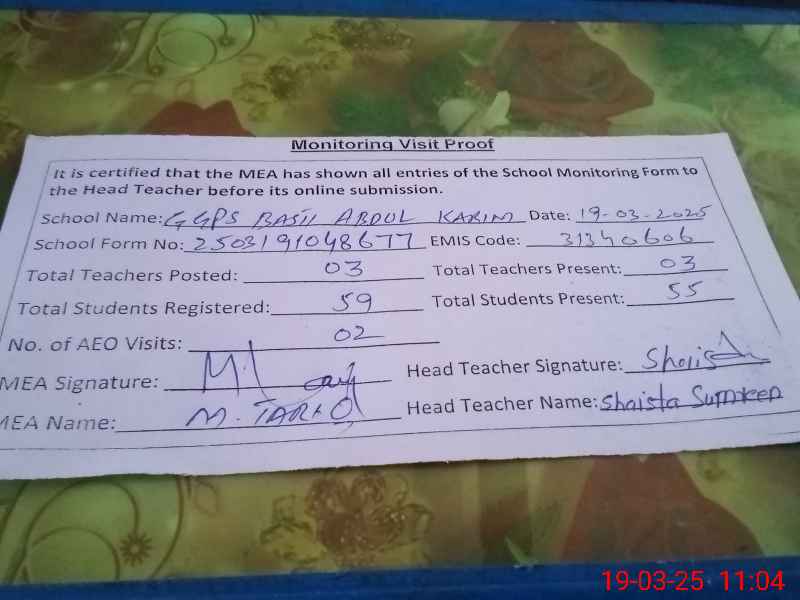 Monitoring Visit Proof
It is certified that the MEA has shown all entries of the School Monitoring Form to
the Head Teacher before its online submission.
School Name: GGPS BASTI ABDUL KARIM Date: 19-03-2025
School Form No: 2503191048677 EMIS Code: 31340606
Total Teachers Posted: 03 Total Teachers Present: 03
Total Students Registered: 59 Total Students Present: 55
No. of AEO Visits: 02
MEA Signature: Head Teacher Signature:
MEA Name: M. TARIQ Head Teacher Name: Shaista
19-03-25 11:04